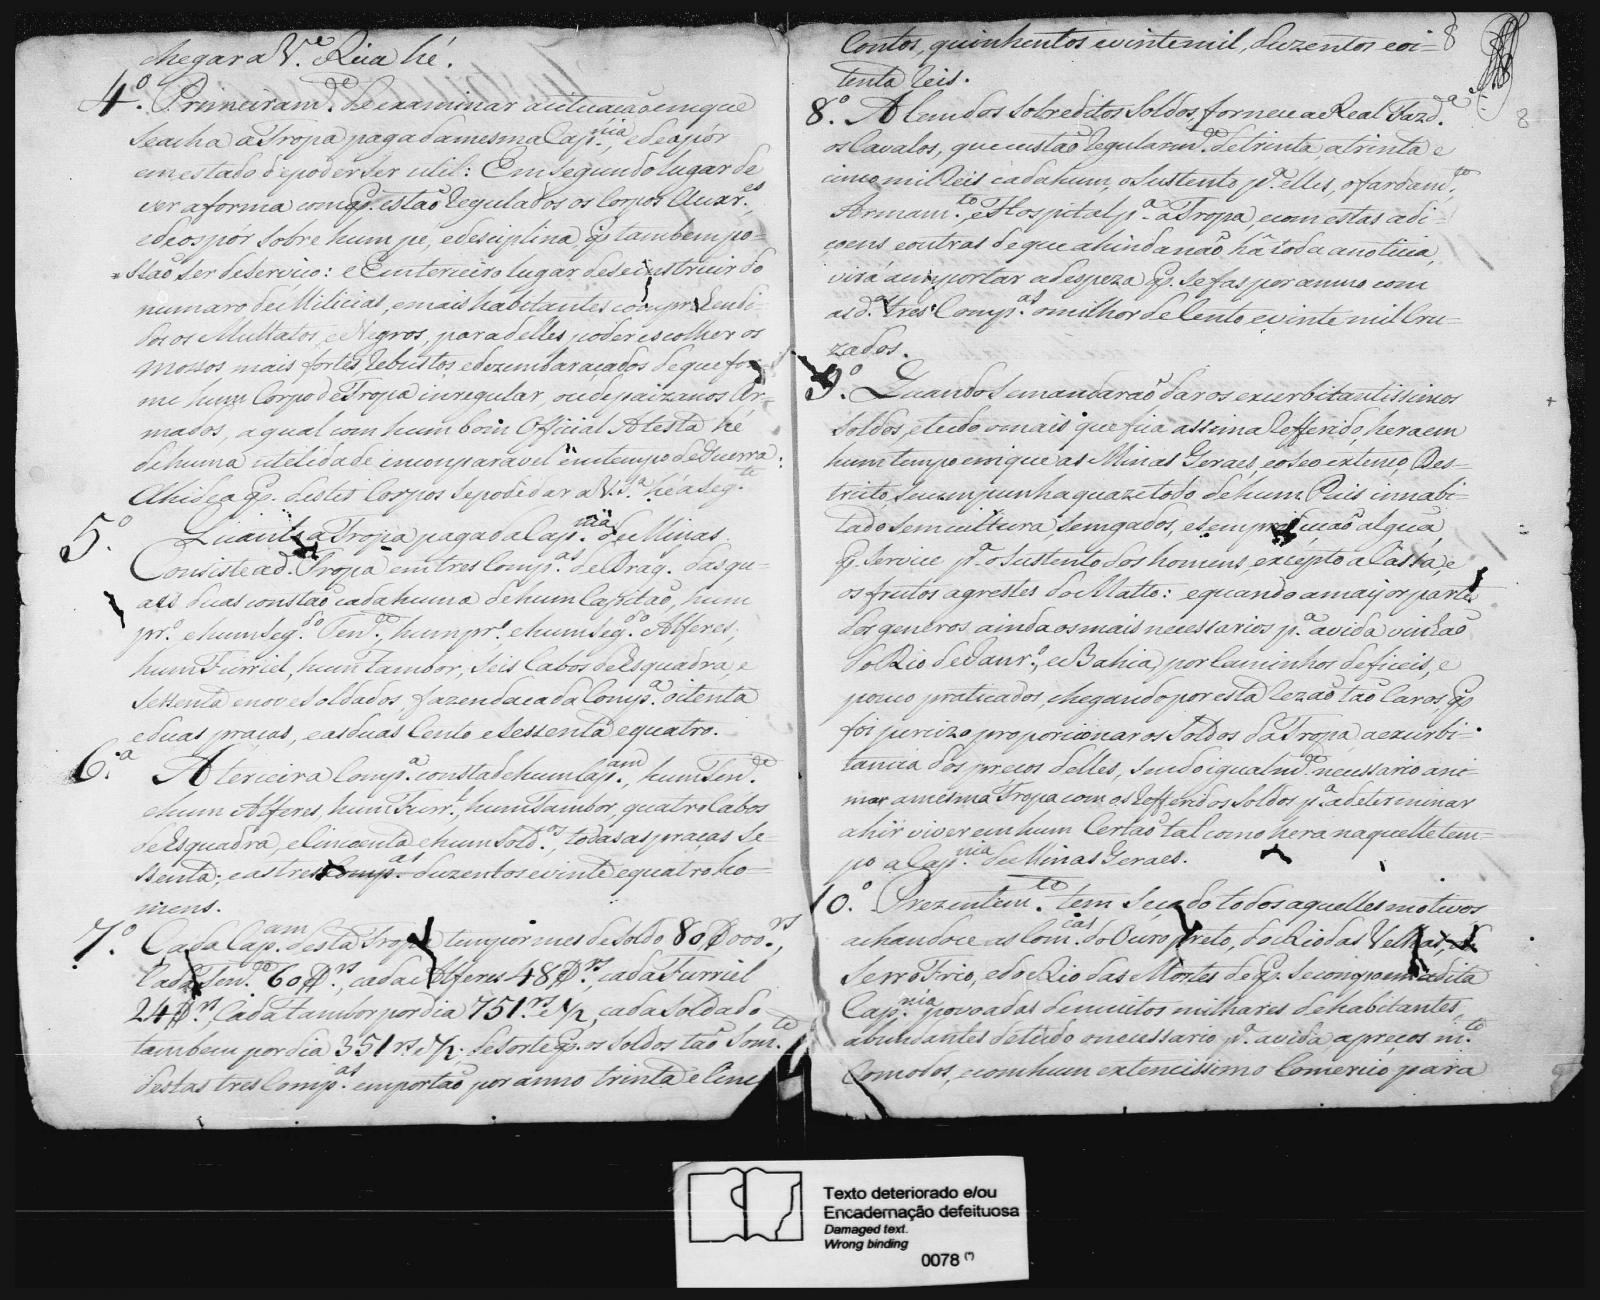 chegar a V.ª Rica hé.
4.º Primeiram.te de examinar a cituacão em que
se acha a Tropa paga da mesma Cap.nia, e de a pôr
em estado de poder ser util: Em segundo lugar de
ver a forma com q̃ estaõ regulados os Corpos Auxr.es
e de os pôr sobre hum pe, e desciplina q̃ tambem po-
ssaõ ser de servico: e Em terceiro lugar de se instruir do
numaro de Milicias, e mais habitantes comprehendi-
dos os Mullatos, e Negros, para delles poder escolher os
mossos mais fortes, robustos e dezembaracados de que for-
me hum Corpo de Tropa inregular, ou de paizanos Ar-
mados, a qual com hum bom Official A testa hé
de huma utelidade incomparavel em tempo de Guerra:
A hidea q̃ destes Corpos se pode dar a V. S.ª he a seg.te
5.º Quanto a Tropa paga da Cap.nia de Minas.
Consiste a d.ª Tropa em tres Comp.as de Drag. das qu-
aes duas constaõ cada huma de hum Capitaõ, hum
pr.º e hum seg.do Ten.te, hum pr.º e hum seg.do Alferes,
hum Furriel, hum Tambor, seis Cabos de Esquadra, e
sessenta e nove soldados, fazendo cada Comp.ª oitenta
e duas pracas, e as duas Cento e sessenta e quatro.
6.ª A terceira Comp.ª consta de hum Cap.am, hum Ten.te
e hum Alferes, hum Furr.l, hum Tambor, quatro Cabos
de Esquadra, e Cincoenta e hum Sold.os, todas as pracas se-
ssenta; e as tres Comp.as duzentos e vinte e quatro ho-
mens.
7.º Cada Cap.am desta Tropa tem por mes de soldo 80$000 r.s,
Cada Ten.te 60$ r.s, cada Alferes 48$ r.s, cada Furriel
24$ r.s, Cada Tambor por dia 751 r.s e 1/2, cada Soldado
tambem por dia 351 rs e 1/2. de sorte q̃ os Soldos taõ Som.te
destas tres Comp.as emportaõ por anno trinta e Cinc
Contos, quinhentos e vinte mil, duzentos e oi- 8
tenta Reis.
8.º Alem dos sobreditos Soldos, fornece a Real Fazd.ª 8
os Cavalos, que custaõ regularm.te de trinta a trinta e
cinco mil Reis cada hum, o sustento p.ª elles, o fardam.to,
Armam.to, e Hospital p.ª a Tropa, e com estas adi-
coens e outras de que ahinda naõ hâ toda a noticia,
virá a importar a despeza q̃ se fas por anno com
as d.as tres Comp.as o milhor de Cento e vinte mil Cru-
zados.
9.º Quando se mandaraõ dar os exurbitantissimos
soldos, e tudo o mais que fica assima Refferido, hera em
hum tempo em que as Minas Geraes, e o seo extenço Des-
tricto, se compunha quaze todo de hum Pais innabi-
tado sem cultura, sem gados, e sem producaõ alguã,
q̃ Service p.ª o sustento dos homens, excepto a Cassa, e
os frutos agrestes do Matto: e quando a mayor parte
dos generos, ainda os mais necessarios p.ª a vida vinhaõ
do Rio de Janr.º, e Bahia, por Caminhos deficeis, e
pouco praticados, chegando por esta rezaõ taõ Caros, q̃
foi percizo proporcionar os Soldos da Tropa a exurbi-
tancia dos precos delles, sendo igualm.te necessario ani-
mar a mesma Tropa com os Refferidos soldos p.ª a determinar
a hir viver em hum Certaõ tal como hera naquelle tem-
po a Cap.nia de Minas Geraes.
10.º Prezentem.te tem Secado todos aquelles motivos
achandoce as Com.cas do Ouro preto, do Rio das Velhas, do
Serro Frio, e do Rio das Mortes de q̃ se compoem a dita
Cap.nia povoadas de muitos milhares de habitantes,
abundantes de tudo o necessario p.ª a vida, a precos m.to
Comodos, e com hum extencissimo Comercio para
Texto deteriorado e/ou
Encadernação defeituosa
Damaged text.
Wrong binding
0078 (*)